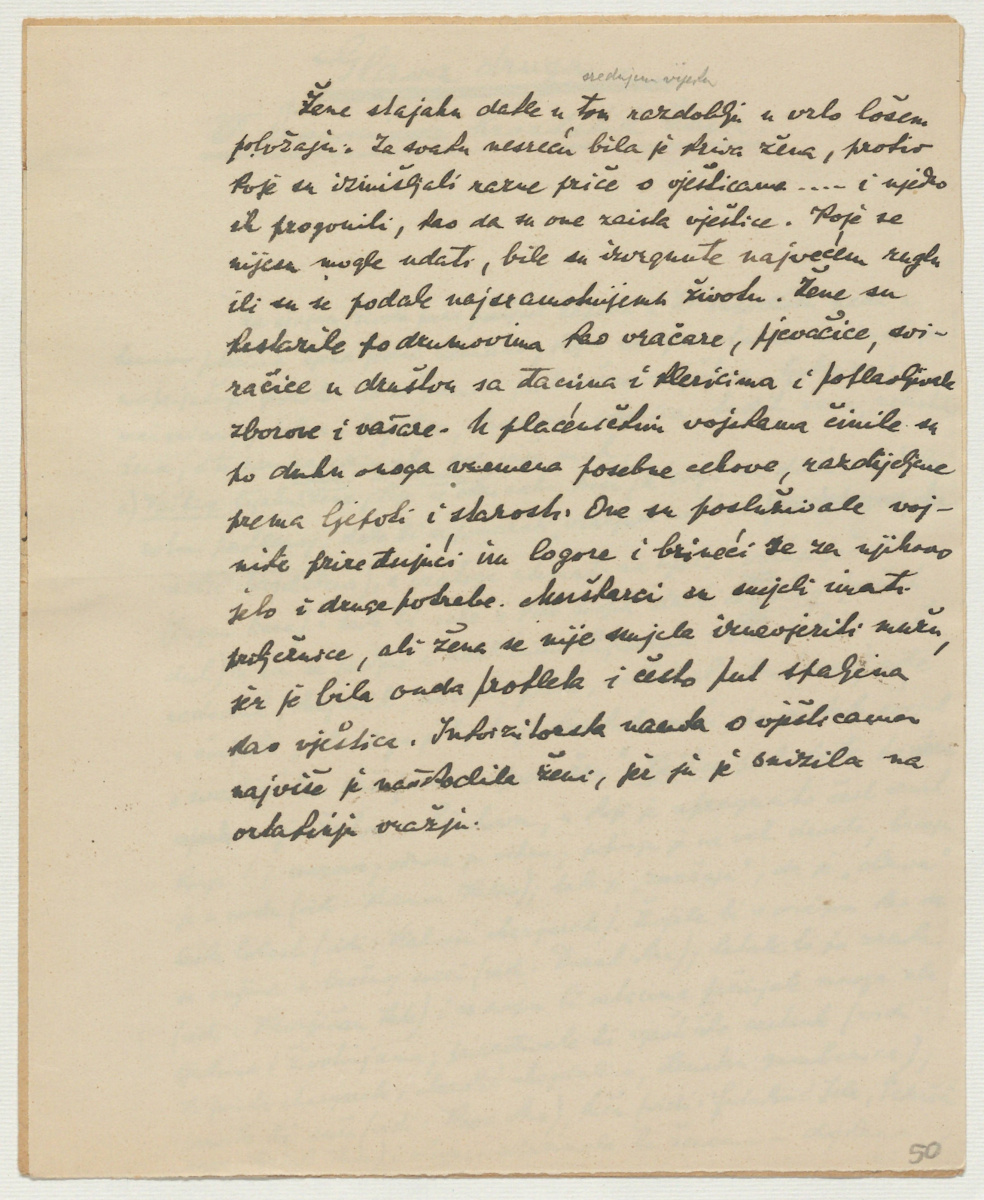 srednjem vijeku
Žene stajahu dakle u tom razdoblju u vrlo lošem
položaju. Za svaku nesreću bila je kriva žena, protiv
koje su izmišljali razne priče o vješticama .... i
ih progonili, kao da su one zaista vještice. Koje se
nijesu mogle udati, bile su izvrgnute najvećem ruglu
ili su se podale najsramotnijemu životu. Žene su
krstarile po drumovima kao vračare, pjevačice, svi-
račice u društvu sa đacima i klericima i
zborove i vašare. U plaćeničkim vojskama činile su
po duhu onoga vremena posebne cehove, razdijeljene
prema ljepoti i starosti. One su posluživale voj-
nike priređujući im logore i brineći se za njihovo
jelo i druge potrebe. Muškarci su smjeli imati
priležnice, ali žena se nije smjela iznevjeriti mužu,
jer je bila onda prokleta i često put spaljena
kao vještica. Inkvizitorska nauka o vješticama
najviše je naškodila ženi, jer ju je snizila na
ortakinju vražju.
50